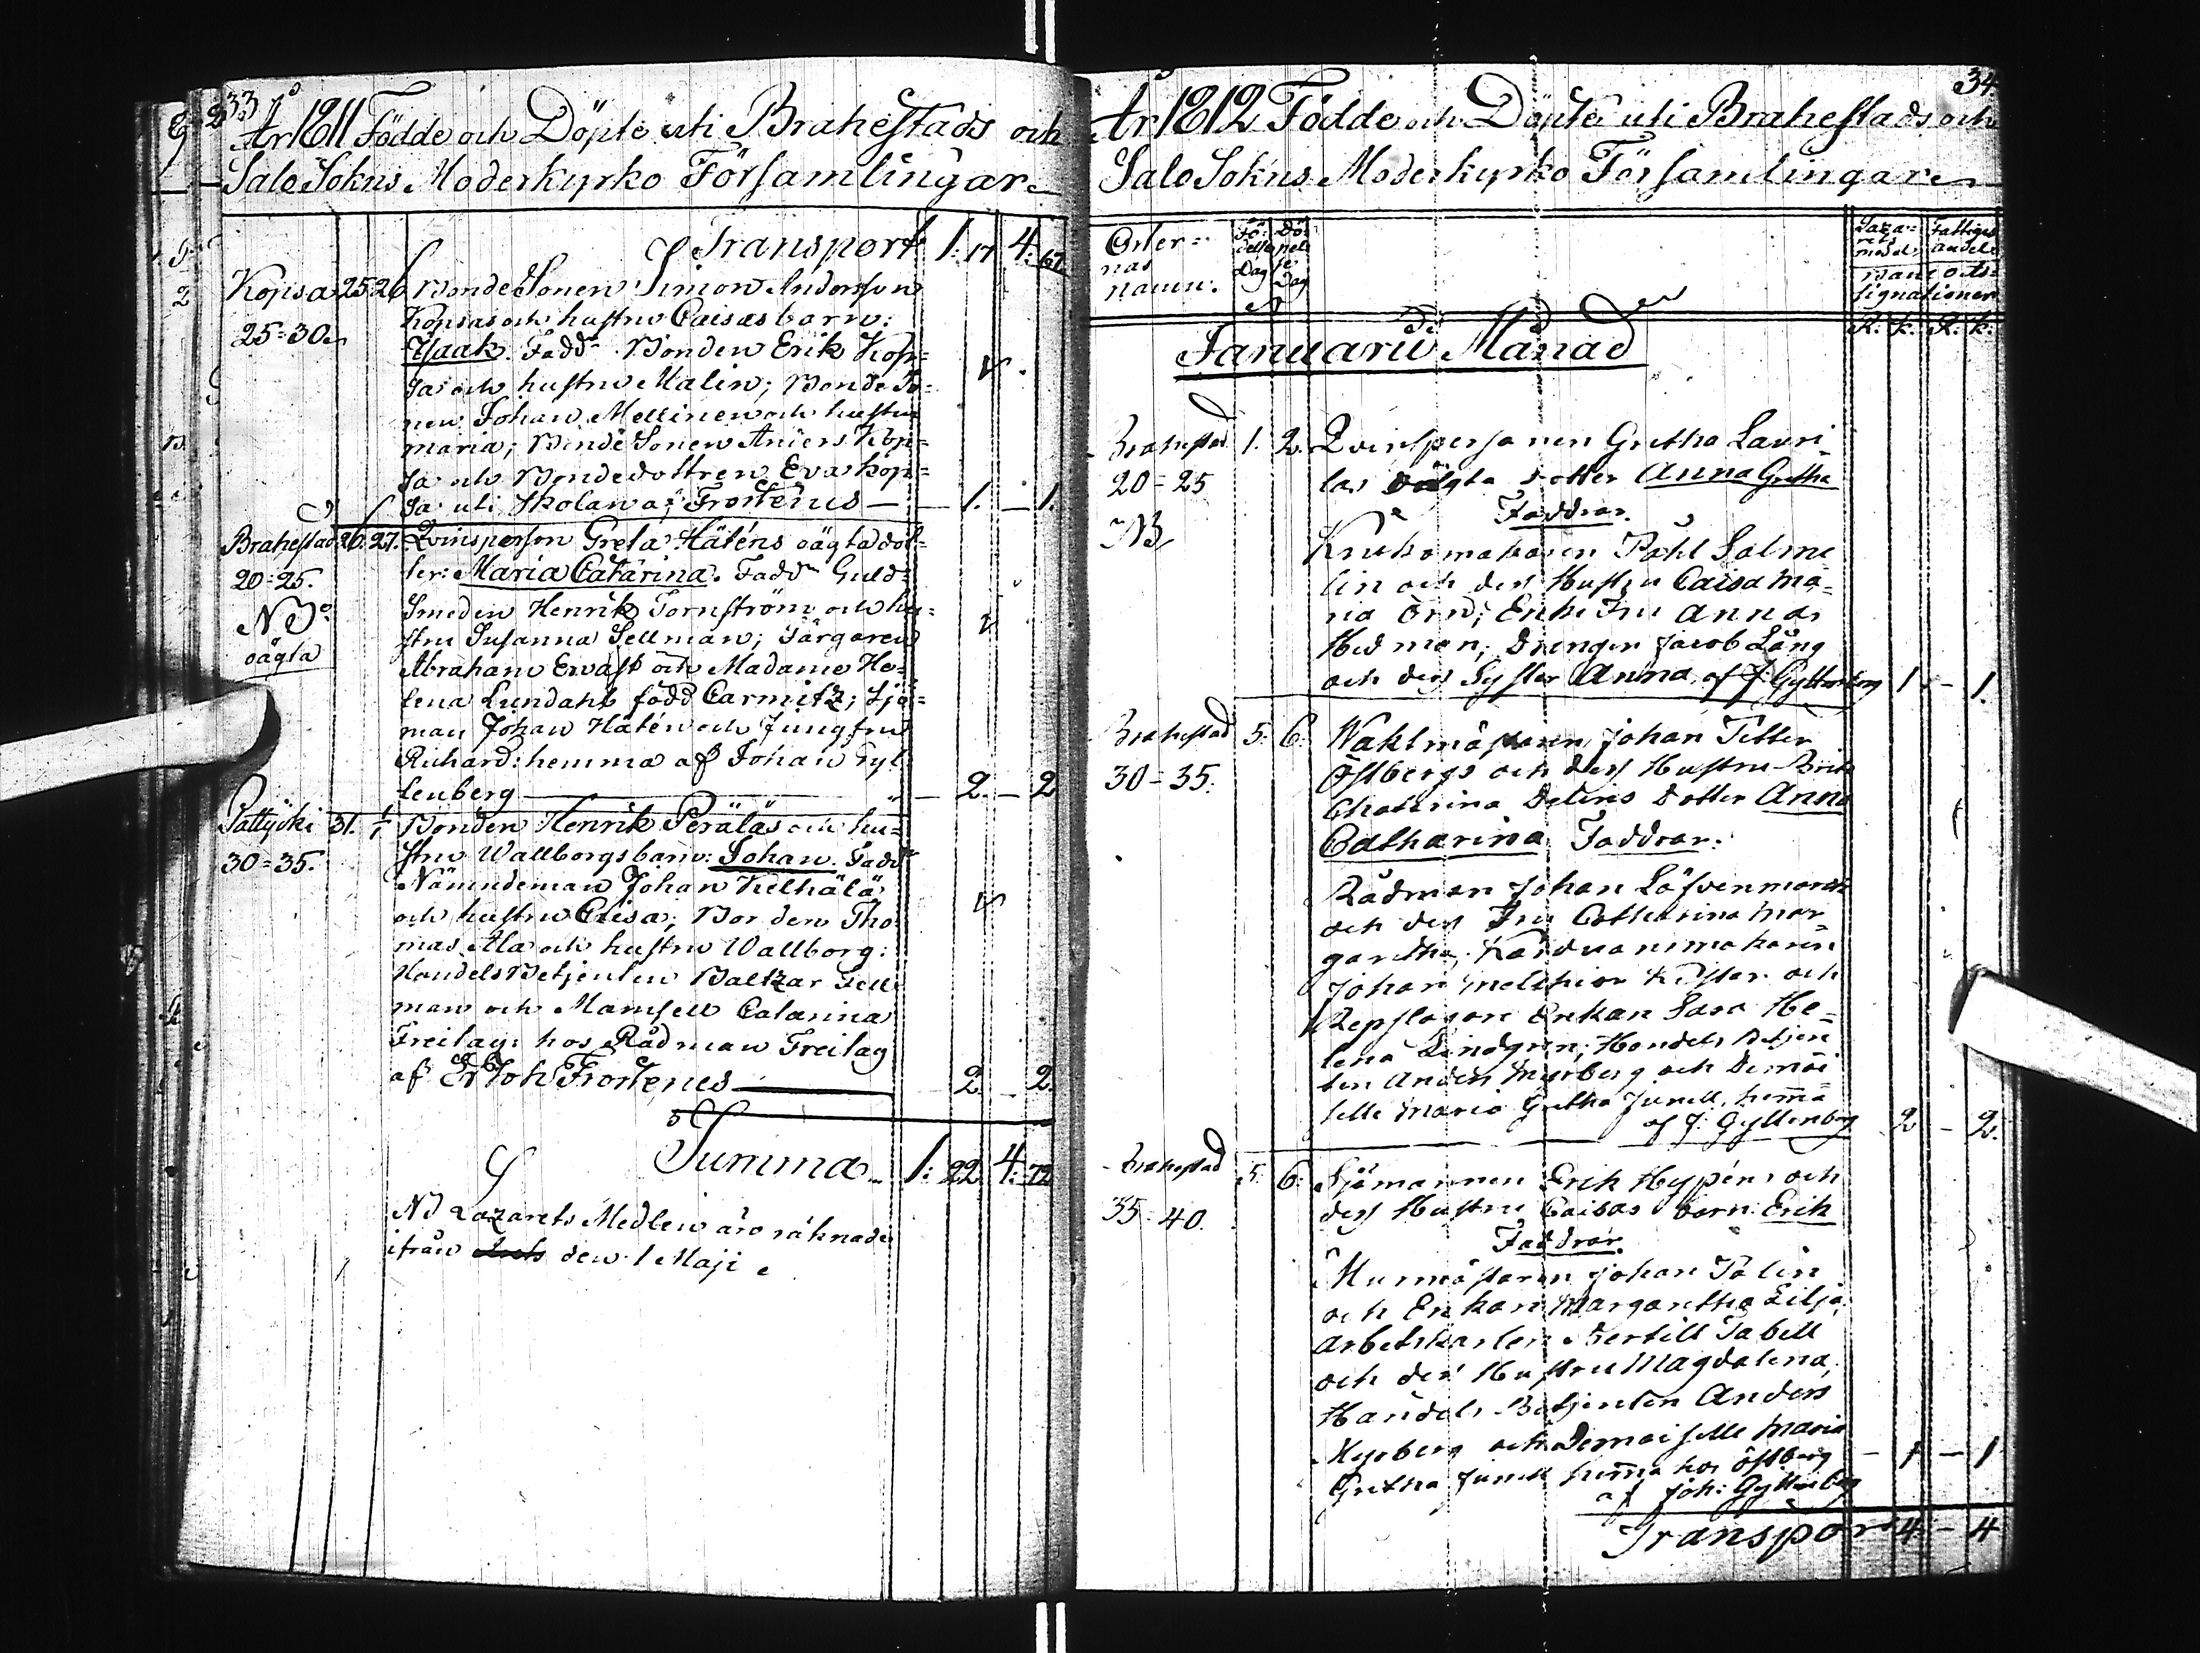 33
År 1811 Födde och Döpte uti Brahestads och
Salo Sokns Moderkyrko Församlingar
Transport 1: 17 4: 67
Kopsa 25 26 Bonde Sonen Simon Andersson
Kopsas och hustru Caisas barn:
25=30. Isaak. Fadd. Bonden Erik Kop=
sa och hustru Malin; Bonde So=
nen Johan Mellinen och hustru
maria; Bonde Sonen Anders Kop=
sa och Bondedottren Eva Kop=
sa uti Skolan af Frosterus — 1. — 1.
Brahestad 26. 27. Qvinsperson Greta Håténs oägta dot=
20=25. ter: Maria Catarina. Fadd. Guld=
NB: Smeden Henrik Tornström och hu=
oägta stru Susanna Sellman; Färgaren
Abraham Ervast och Madame He=
lena Lundahl född Carmitz; Sjö=
man Johan Håtén och Jungfru
Richard: hemma af Johan Gyl
lenberg — 2. — 2
Pattijoki 31. 1/1 Bonden Henrik Peräläs och hu=
30=35. stru Wallborgs barn: Johan. Fadd
Nämndeman Johan Kelhälä
och hustru Elisa; Bonden Tho
mas Ala och hustru Wallborg:
Handels Betjenten Baltzar Fell
man och Mamsell Catarina
Freitag: hos Rådman Freitag
af Er Joh Frosterus — 2. — 2.
Summa 1: 22 4: 72
NB Lazarets Medlen äro räknade
ifrån den 1 Maji
34
År 1812 Födde och Döpte uti Brahestads och
Salo Sokns Moderkyrko Församlingar
Orter= Fö= Dö=
nas delse pelse
namn. Dag Dag
Laza= Fattiges
rets andels
medel
samt och as=
signationer
R: k: R: k:
Januarii Månad
Brahestad 1. 2. Qvinspersonen Gretha Lauri
20=25 las oägta dotter Anna Gretha
NB Faddrar.
Krukomakaren Påhl Salme
lin och des Hustru Caisa Ma=
ria Orn; Enke Fru Anna
Hedman; Drengen Jacob Lång
och des Syster Anna af J: Gyllenberg 1. — 1.
Brahestad 5. 6. Waktmästaren Johan Petter
30=35. Östbergs och dess Hustru Brita
Chatarina Deleens dotter Anna
Catharina Faddrar:
Rådman Johan Löfvenmarck
och des Fru Catharina Mar
garetha; Karduansmakaren
Johan Melchior Küster och
Repslagare Enkan Sara He=
lena Lindgren; Handels Betjen
ten Anders Myrberg och Demoi
selle Maria Gretha Junell, hemma
af J: Gyllenberg 2 — 2.
Brahestad 5. 6. Sjömannen Erik Hypéns och
35=40. dess Hustru Caisas barn: Erik
Faddrar.
Murmästaren Johan Palin
och Enkan Margaretha Lilja;
Arbetskarlen Bertill Tabell
och des Hustru Magdalena,
Handels Betjenten Anders
Myrberg och Demoiselle Maria
Gretha Junell hemma hos Östberg — 1 — 1
af Joh: Gyllenberg
Transport 4. — 4